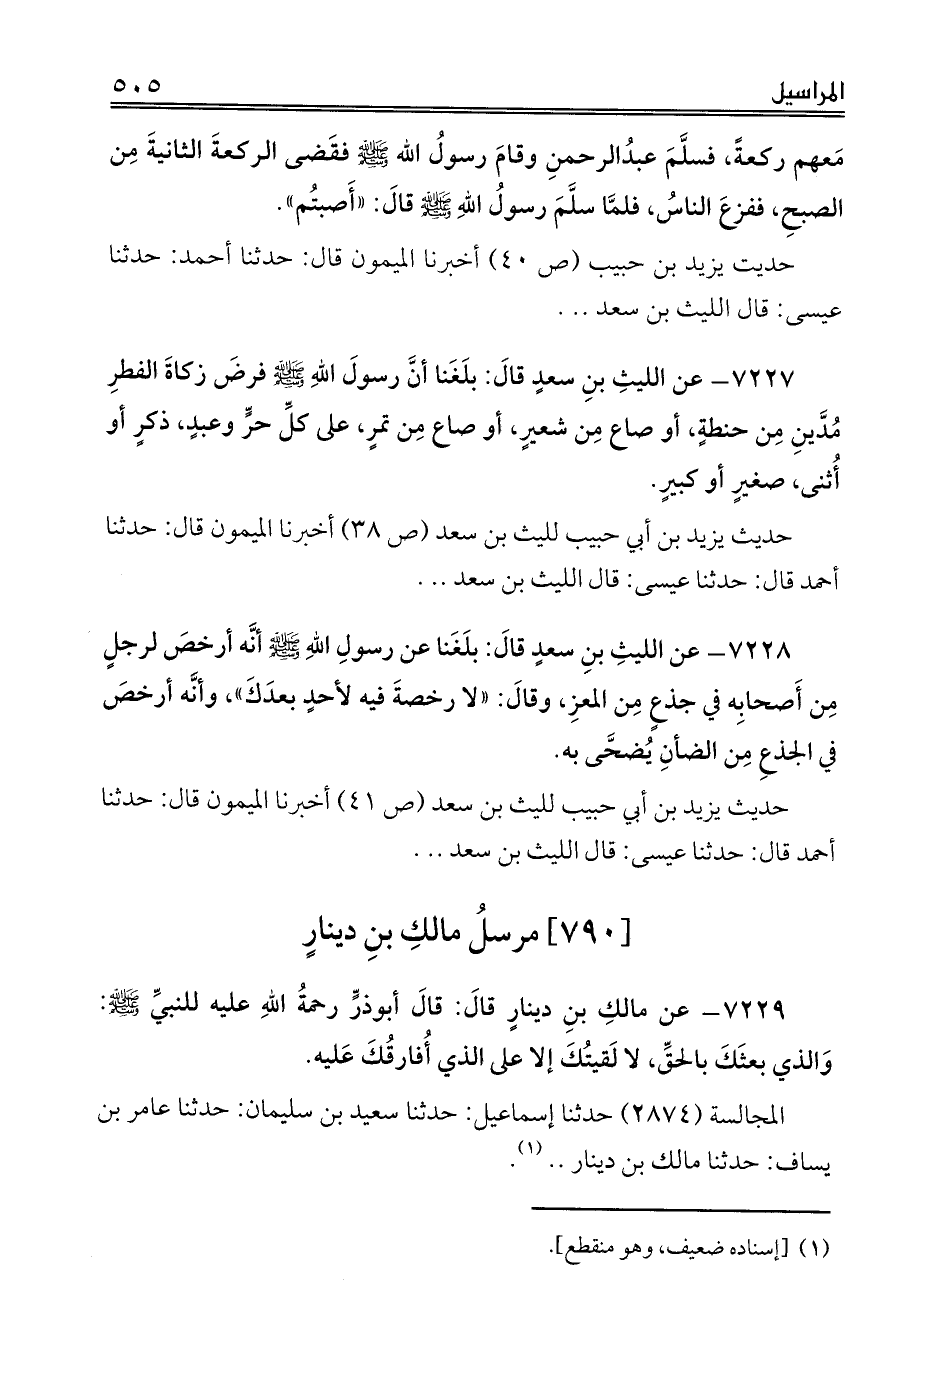 المراسيل ٥٠٥
مَعهم ركعةً، فسلَّمَ عبدُالرحمنِ وقامَ رسولُ الله ﷺ فقَضى الركعةَ الثانيةَ مِن
الصبحِ، ففزعَ الناسُ، فلمَّا سلَّمَ رسولُ اللهِ ﷺ قالَ: «أَصبتُم».
حديث يزيد بن حبيب (ص ٤٠) أخبرنا الميمون قال: حدثنا أحمد: حدثنا
عيسى: قال الليث بن سعد ...
٧٢٢٧ـ عن الليثِ بنِ سعدٍ قالَ: بلَغَنا أنَّ رسولَ اللهِ ﷺ فرضَ زكاةَ الفطرِ
مُدَّينِ مِن حنطةٍ، أو صاع مِن شعيرٍ، أو صاع مِن تمرٍ، على كلِّ حرٍّ وعبدٍ، ذكرٍ أو
أُنثى، صغيرٍ أو كبيرٍ.
حديث يزيد بن أبي حبيب لليث بن سعد (ص ٣٨) أخبرنا الميمون قال: حدثنا
أحمد قال: حدثنا عيسى: قال الليث بن سعد ...
٧٢٢٨ـ عن الليثِ بنِ سعدٍ قالَ: بلَغَنا عن رسولِ اللهِ ﷺ أنَّه أرخصَ لرجلٍ
مِن أَصحابِه في جذعٍ مِن المعزِ، وقالَ: «لا رخصةَ فيه لأحدٍ بعدَكَ»، وأنَّه أرخصَ
في الجذعِ مِن الضأنِ يُضحَّى به.
حديث يزيد بن أبي حبيب لليث بن سعد (ص ٤١) أخبرنا الميمون قال: حدثنا
أحمد قال: حدثنا عيسى: قال الليث بن سعد ...
[٧٩٠] مرسلُ مالكِ بنِ دينارٍ
٧٢٢٩ـ عن مالكِ بنِ دينارٍ قالَ: قالَ أبوذرٍّ رحمةُ اللهِ عليه للنبيِّ ﷺ:
وَالذي بعثَكَ بالحقِّ، لا لَقيتُكَ إلا على الذي أُفارقُكَ عَليه.
المجالسة (٢٨٧٤) حدثنا إسماعيل: حدثنا سعيد بن سليمان: حدثنا عامر بن
يساف: حدثنا مالك بن دينار .. (١).
(١) [إسناده ضعيف، وهو منقطع].